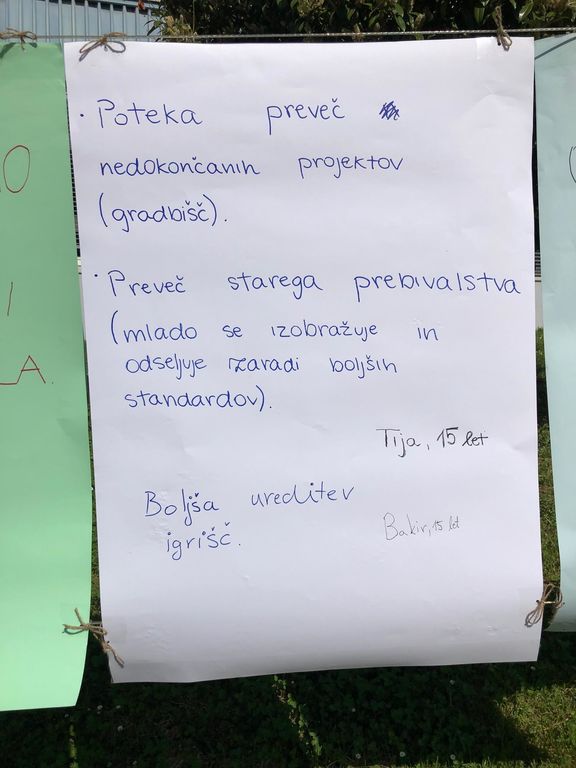 O
I
LA.
· Poteka preveč
nedokončanih projektov
(gradbišč).
· Preveč starega prebivalstva
(mlado se izobražuje in
odseljuje zaradi boljših
standardov).
Tija, 15 let
Boljša ureditev
igrišč.
Bakir, 15 let